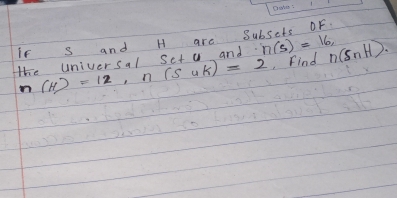 Date:
If S and H are Subsets OF.
the universal Set U and n(S) = 16,
n (H) = 12, n (S u k) = 2. Find n(SnH).